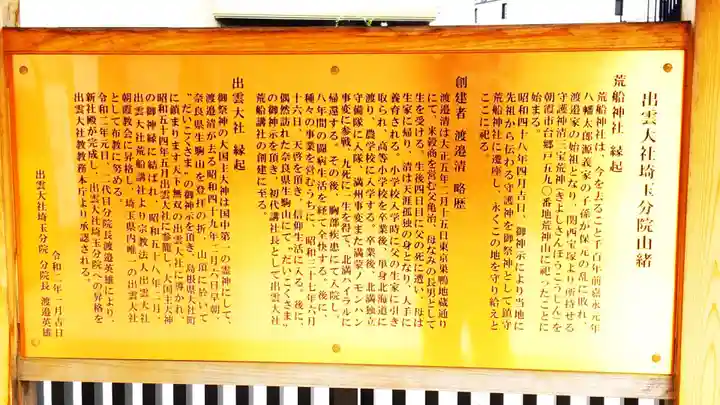 出雲大社埼玉分院由緒
荒船神社 縁起
荒船神社は、今を去ること千百年前嘉永元年
八幡太郎源義家の子孫が保元の乱に敗れ、
渡邉家の始祖となり、関西宝塚より所持せる
守護神清三宝荒神（きよしさんぽうこうじん）を
朝霞市台郷戸五九〇番地荒神山に祀ったことに
始まる。
昭和四十八年四月吉日、御神示により当地に
先祖から伝わる守護神を御祭神として鎮守
荒船神社に遷座し、永くこの地を守り給えと
ここに祀る。
創建者 渡邉清 略歴
渡邉清は大正五年二月十五日東京巣鴨地蔵通り
にて、米穀商を営む父亀治、母なみの長男として
生を受ける。生後四日目に父の死に遭い、母は
生家に帰り、清は天涯孤独の身となり、人手に
養育される。小学校入学時に父の生家に引き
取られ、高等小学校を卒業後、単身北海道に
渡り、農学校に入学する。卒業後、北満独立
守備隊に入隊、満州事変また満蒙ノモンハン
事変に参戦、九死に一生を得て、北満ハイラルに
帰還する。その後、胸部疾患にて入院し、
八年間の闘病生活を経て全快する。後に、
種々の事業を営むうち、昭和三十七年六月
十六日、天啓を頂き、信仰生活に入る。後に、
偶然訪れた奈良県生駒山にて、"だいこくさま"
の御神示を頂き、初代講社長として出雲大社
荒船講社の創建に至る。
出雲大社 縁起
御祭神の大国主大神は国中第一の霊神にして、
渡邉清が去る昭和四十九年一月六日早朝、
奈良県生駒山を登拝の折、山頂に於いて
"だいこくさま"の御神示を頂き、島根県大社町
に鎮まります天下無双の出雲大社に導かれ、
昭和五十四年五月出雲大社に参籠し、大国主大神
の御神縁に結ばれ、昭和五十八年二月、
出雲大社荒船講社より宗教法人出雲大社
朝霞教会に昇格し、埼玉県内唯一の出雲大社
として布教に努める。
令和二年元旦、二代分院長渡邉英雄により、
新社殿が完成し、出雲大社埼玉分院への昇格を
出雲大社教教務本庁より承認される。
令和二年一月吉日
出雲大社埼玉分院 分院長 渡邉英雄